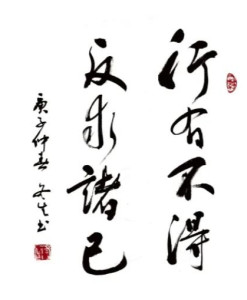 行有不得
反求諸己
庚子仲春